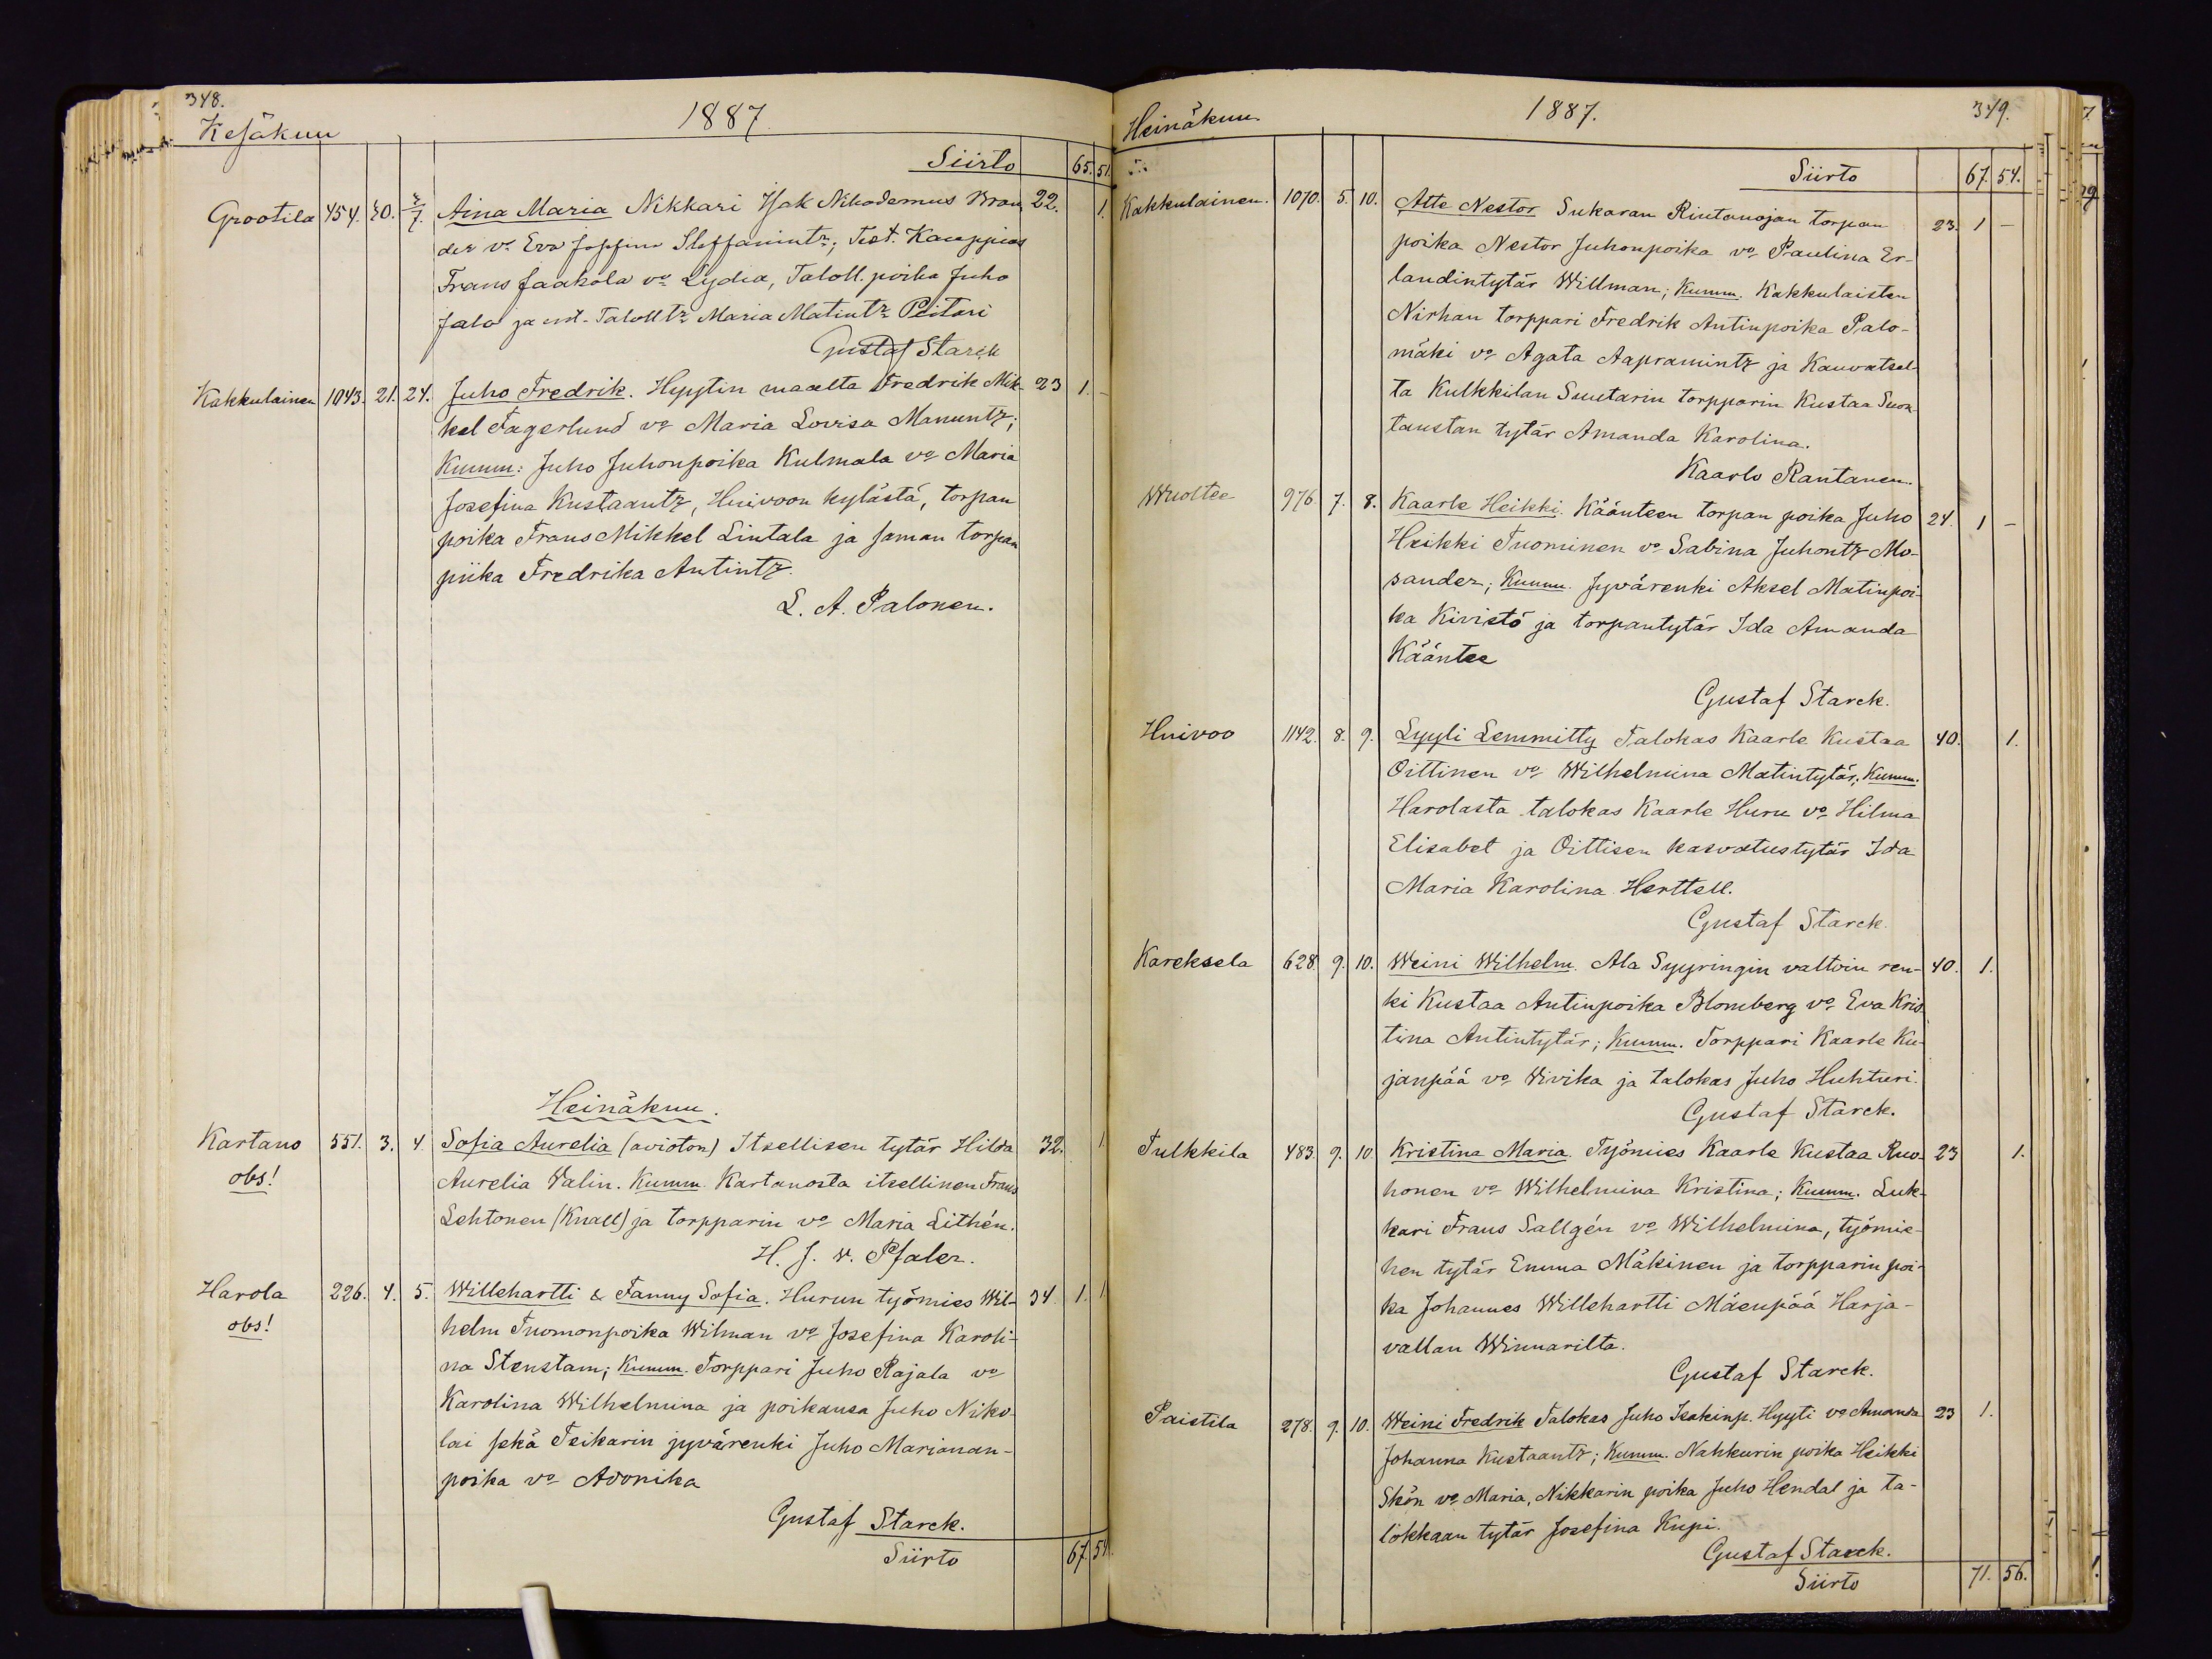 348.
Kesäkuu
1887
Siirto 65. 51.
Grootila 454. 20. 2/7 Aina Maria Nikkari Isak Nikodemus Bran 22. 1.
der vo Eva Josefina Steffanintr; Test. Kauppias
Frans Jaakola vo Lydia, Taloll. poika Juho
Jalo ja ent. Talolltr Maria Matintr Peitari
Gustaf Starck
Kakkulainen 1043. 21. 24. Juho Fredrik. Hyytin maalta Fredrik Mik- 23 1. -
kel Fagerlund vo Maria Lovisa Manuntr;
Kumm: Juho Juhonpoika Kulmala vo Maria
Josefina Kustaantr, Huivoon kylästä, torpan
poika Frans Mikkel Lintala ja saman torpan
piika Fredrika Antintr.
L. A. Palonen.
Heinäkuu.
Kartano 551. 3. 4. Sofia Aurelia (avioton) Itsellisen tytär Hilda 32. 1
obs!
Aurelia Valin. Kumm. Kartanosta itsellinen Frans
Lehtonen (Knall) ja torpparin vo Maria Lithén.
H. J. v. Pfaler.
Harola 226. 4. 5. Willehartti & Fanny Sofia. Hurun työmies Wil- 34. 1. 1
obs!
helm Tuomonpoika Wilman vo Josefina Karoli-
na Stenstam; Kumm. Torppari Juho Rajala vo
Karolina Wilhelmina ja poikansa Juho Niko-
lai sekä Teikarin jyvärenki Juho Marjanan-
poika vo Adonika
Gustaf Starck.
Siirto 67. 54.
Heinäkuu
1887.
349.
Siirto 67. 54.
Kakkulainen. 1070. 5. 10. Atte Nestor Sukaran Rintanojan torpan 23. 1 -
poika Nestor Juhonpoika vo Paulina Er-
landintytär Willman; Kumm. Kakkulaisten
Nirhan torppari Fredrik Antinpoika Palo-
mäki vo Agata Aapramintr ja Kauvatsal-
ta Kulkkilan Suutarin torpparin Kustaa Suon-
taustan tytär Amanda Karolina.
Kaarlo Rantanen.
Wuoltee 976 7. 8. Kaarle Heikki. Käänteen torpan poika Juho 24. 1 -
Heikki Tuominen vo Sabina Juhontr Mo-
sander; Kumm. Jyvärenki Aksel Matinpoi-
ka Kivistö ja torpantytär Ida Amanda
Kääntee
Gustaf Starck.
Huivoo 1142. 8. 9. Lyyli Lemmitty Talokas Kaarle Kustaa 40. 1.
Oittinen vo Wilhelmina Matintytär; Kumm.
Harolasta talokas Kaarle Huru vo Hilma
Elisabet ja Oittisen kasvatustytär Ida
Maria Karolina Herttell.
Gustaf Starck.
Kareksela 628. 9. 10. Weini Wilhelm. Ala Syyringin valtoin ren- 40. 1.
ki Kustaa Antinpoika Blomberg vo Eva Kris-
tina Antintytär; Kumm. Torppari Kaarle Ku-
janpää vo Wivika ja talokas Juho Huhturi.
Gustaf Starck.
Tulkkila 483. 9. 10. Kristina Maria. Työmies Kaarle Kustaa Ruo- 23 1.
honen vo Wilhelmina Kristina; Kumm. Luk-
kari Frans Sallgén vo Wilhelmina, työmie-
hen tytär Emma Mäkinen ja torpparin poi-
ka Johannes Willehartti Mäenpää Harja-
vallan Winnarilta.
Gustaf Starck.
Paistila 278. 9. 10. Weini Fredrik Talokas Juho Isakinp. Hyyti vo Amanda 23 1.
Johanna Kustaantr; Kumm. Nahkurin poika Heikki
Skön vo Maria, Nikkarin poika Juho Hendal ja ta-
lokkaan tytär Josefina Kupi.
Gustaf Starck.
Siirto 71. 56.